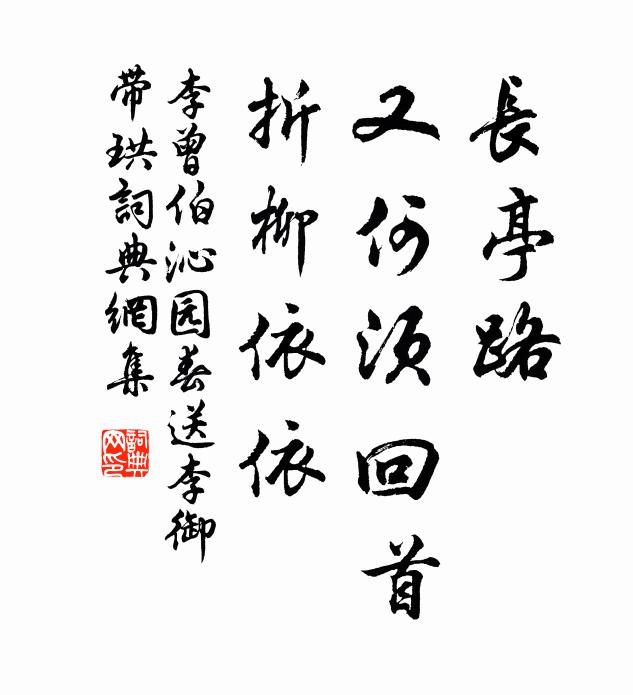 長亭路
又何須回首
折柳依依
李曾伯沁园春送李御
带珙詞典網集
詞典网印